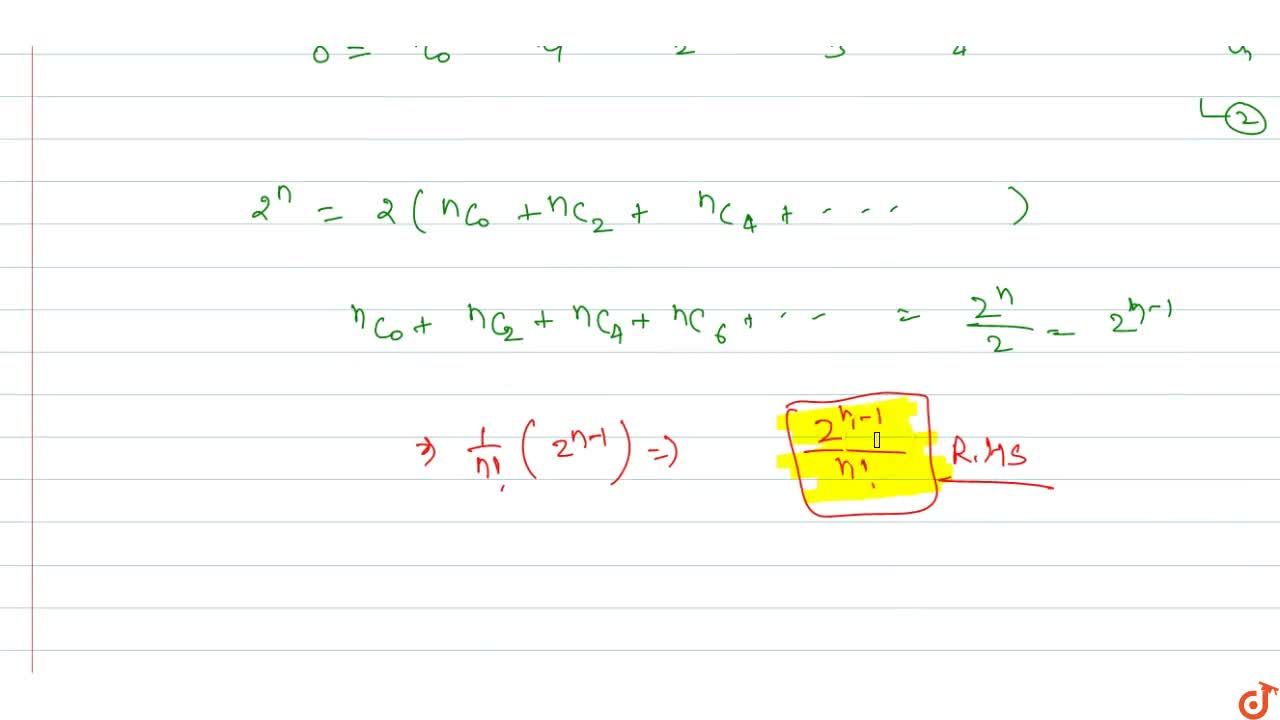 2ⁿ = 2 ( nC₀ + nC₂ + nC₄ + ···· )
nC₀ + nC₂ + nC₄ + nC₆ + ···· = 2ⁿ/2 = 2ⁿ⁻¹
⇒ 1/n! ( 2ⁿ⁻¹ ) ⇒ 2ⁿ⁻¹/n! R.HS